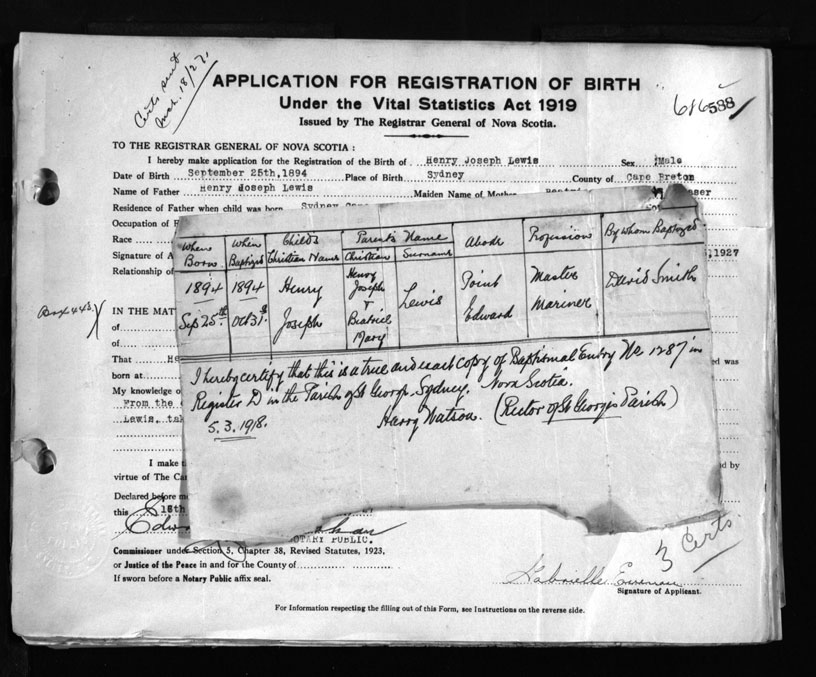 Certs sent
Mch. 18/27.
APPLICATION FOR REGISTRATION OF BIRTH
Under the Vital Statistics Act 1919
Issued by The Registrar General of Nova Scotia.
616588
TO THE REGISTRAR GENERAL OF NOVA SCOTIA :
I hereby make application for the Registration of the Birth of Henry Joseph Lewis Sex Male
Date of Birth September 25th, 1894 Place of Birth Sydney County of Cape Breton
Name of Father Henry Joseph Lewis Maiden Name of Mother
Residence of Father when child was born Sydney
Occupation of
Race
Signature of ,1927
Relationship of
Box 443.
IN THE MATT
of
of
That
born at
My knowledge o
From the
Lewis,
ed was
I make
virtue of The Ca
d by
Declared before m
this 18th
NOTARY PUBLIC.
Commissioner under Section 5, Chapter 38, Revised Statutes, 1923,
or Justice of the Peace in and for the County of
If sworn before a Notary Public affix seal.
3 Certs.
Gabrielle
Signature of Applicant.
For Information respecting the filling out of this Form, see Instructions on the reverse side.
When Born
When Baptized
Child's Christian Name
Parent's Name
Christian
Surname
Abode
Profession
By whom Baptized
1894 Sep 25th
1894 Oct 31st
Henry Joseph
Henry Joseph + Beatrice Mary
Lewis
Point Edward
Master Mariner
David Smith
I hereby certify that this is a true and exact copy of Baptismal Entry No 1287 in
Register D in the Parish of St George, Sydney, Nova Scotia.
5.3.1918. Harry Watson. (Rector of St George's Parish)